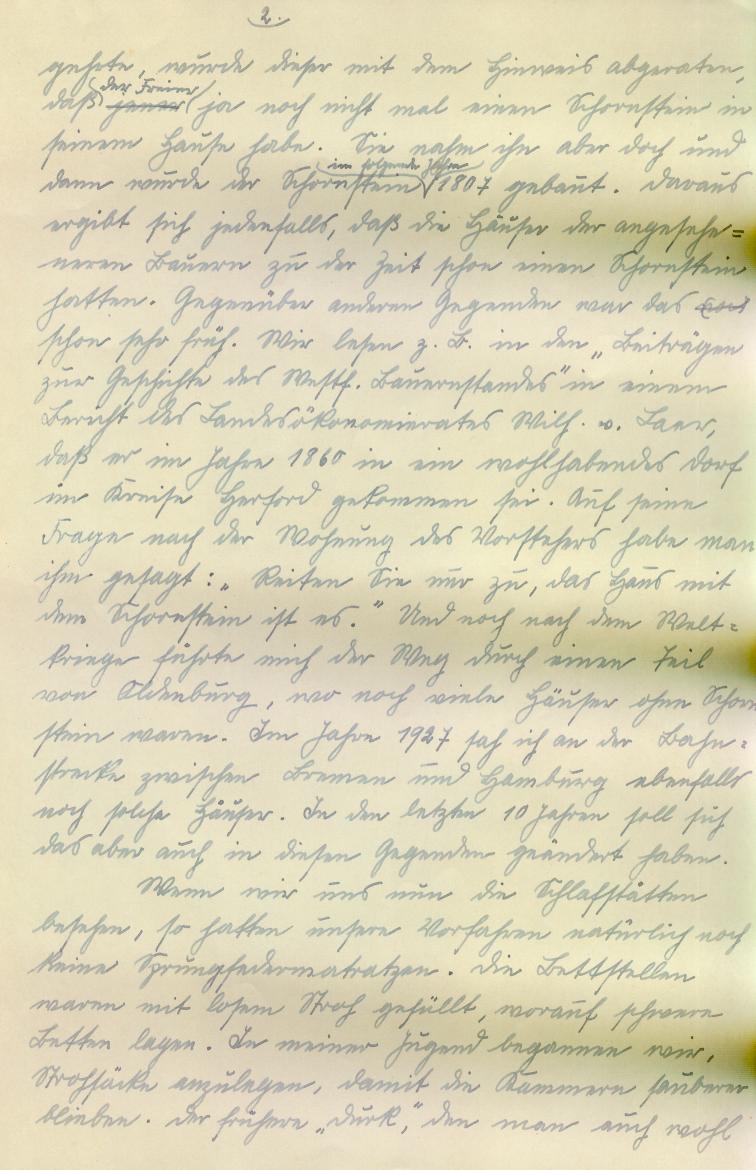 2.
gehrte, wurde dieser mit dem Hinweis abgeraten,
der Freier
daß jener ja noch nicht mal einen Schornstein in
seinem Hause habe. Sie nahm ihn aber doch und
im folgende Jahre
dann wurde der Schornstein 1807 gebaut. Daraus
ergibt sich jedenfalls, daß die Häuser der angesehe=
neren Bauern zu der Zeit schon einen Schornstein
hatten. Gegenüber anderen Gegenden war das
schon sehr früh. Wir lesen z. B. in den „Beiträgen
zur Geschichte des Westf. Bauernstandes" in einem
Bericht des Landesökonomierates Wilh. v. Laer,
daß er im Jahre 1860 in ein wohlhabendes Dorf
im Kreise Herford gekommen sei. Auf seine
Frage nach der Wohnung des Vorstehers habe man
ihm gesagt: „Reiten Sie nur zu, das Haus mit
dem Schornstein ist es." Und noch nach dem Welt=
kriege führte mich der Weg durch einen Teil
von Oldenburg, wo noch viele Häuser ohne Schorn
stein waren. Im Jahre 1927 sah ich an der Bahn=
strecke zwischen Bremen und Hamburg ebenfalls
noch solche Häuser. In den letzten 10 Jahren soll sich
das aber auch in diesen Gegenden geändert haben.
Wenn wir uns nun die Schlafstätten
besehen, so hatten unsere Vorfahren natürlich noch
keine Sprungfedermatratzen. Die Bettstellen
waren mit losem Stroh gefüllt, worauf schwere
Betten lagen. In meiner Jugend begannen wir,
Strohsäcke anzulegen, damit die Kammern sauberer
blieben. Der frühere „Durk", den man auch wohl